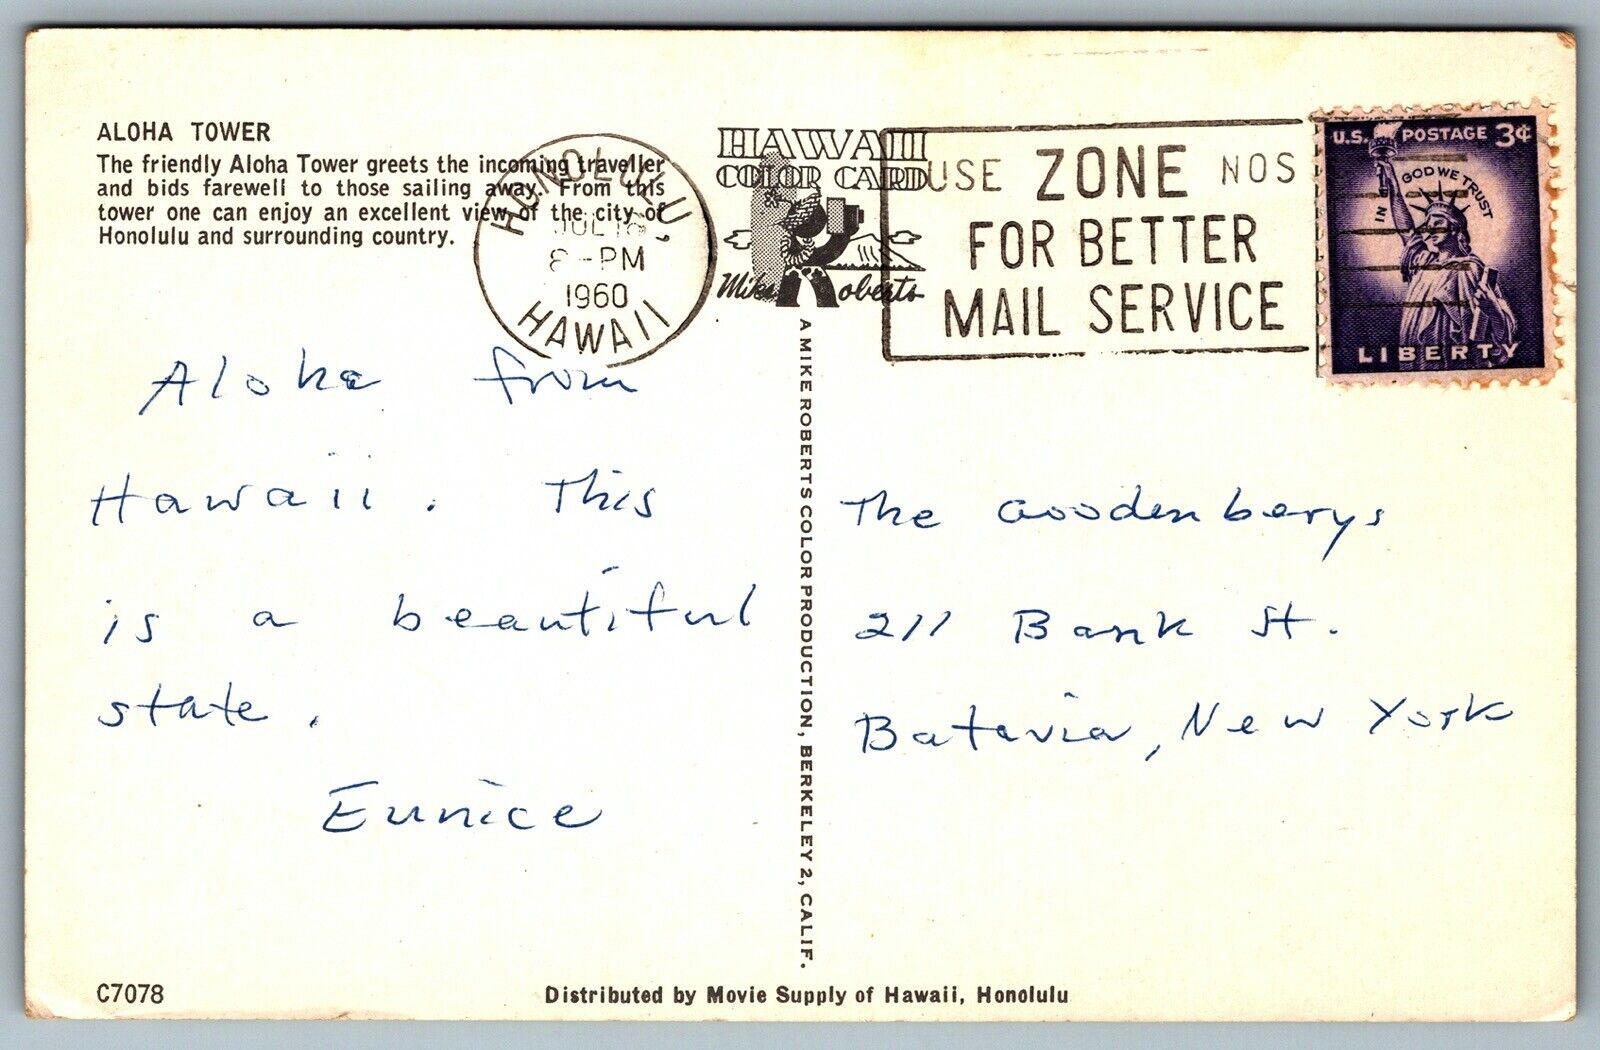 ALOHA TOWER
The friendly Aloha Tower greets the incoming traveller
and bids farewell to those sailing away. From this
tower one can enjoy an excellent view of the city of
Honolulu and surrounding country.
HONOLULU,
JUL
8-PM
1960
HAWAII
HAWAII
COLOR CARD
Mike Roberts
USE ZONE NOS
FOR BETTER
MAIL SERVICE
U.S. POSTAGE 3¢
IN GOD WE TRUST
LIBERTY
Aloha from
Hawaii. This
is a beautiful
state.
Eunice
A MIKE ROBERTS COLOR PRODUCTION, BERKELEY 2, CALIF.
The Goodenberys
211 Bank St.
Batavia, New York
C7078
Distributed by Movie Supply of Hawaii, Honolulu